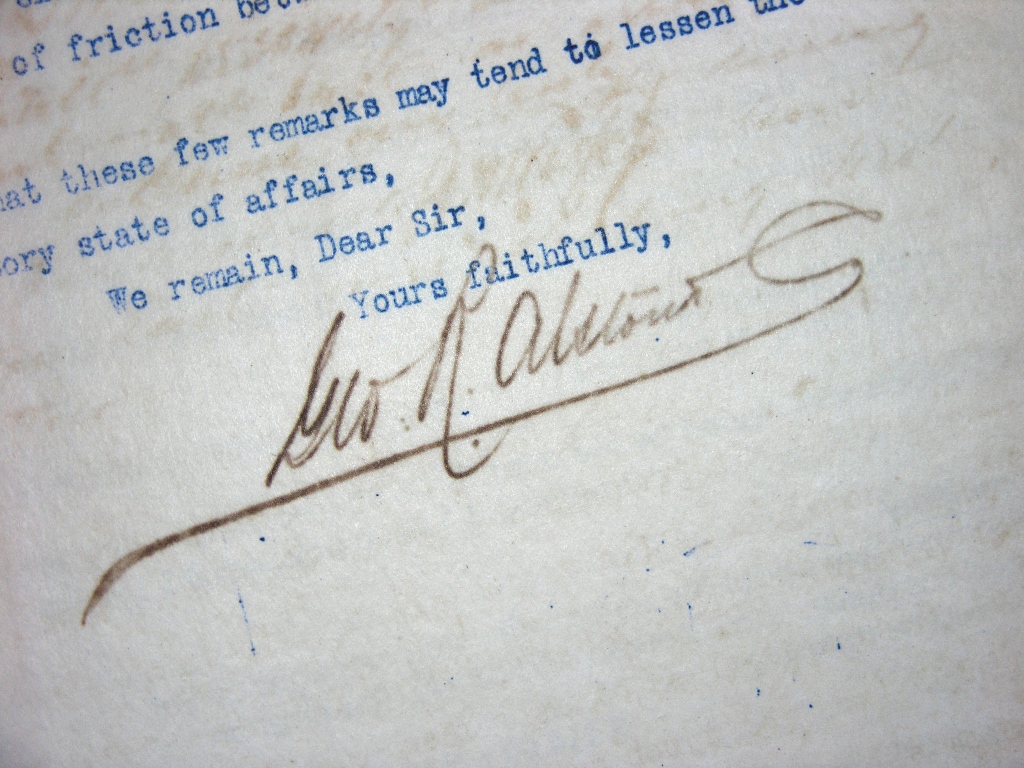 of friction
hat these few remarks may tend to lessen the
ory state of affairs,
We remain, Dear Sir,
Yours faithfully,
Geo. R. Alston